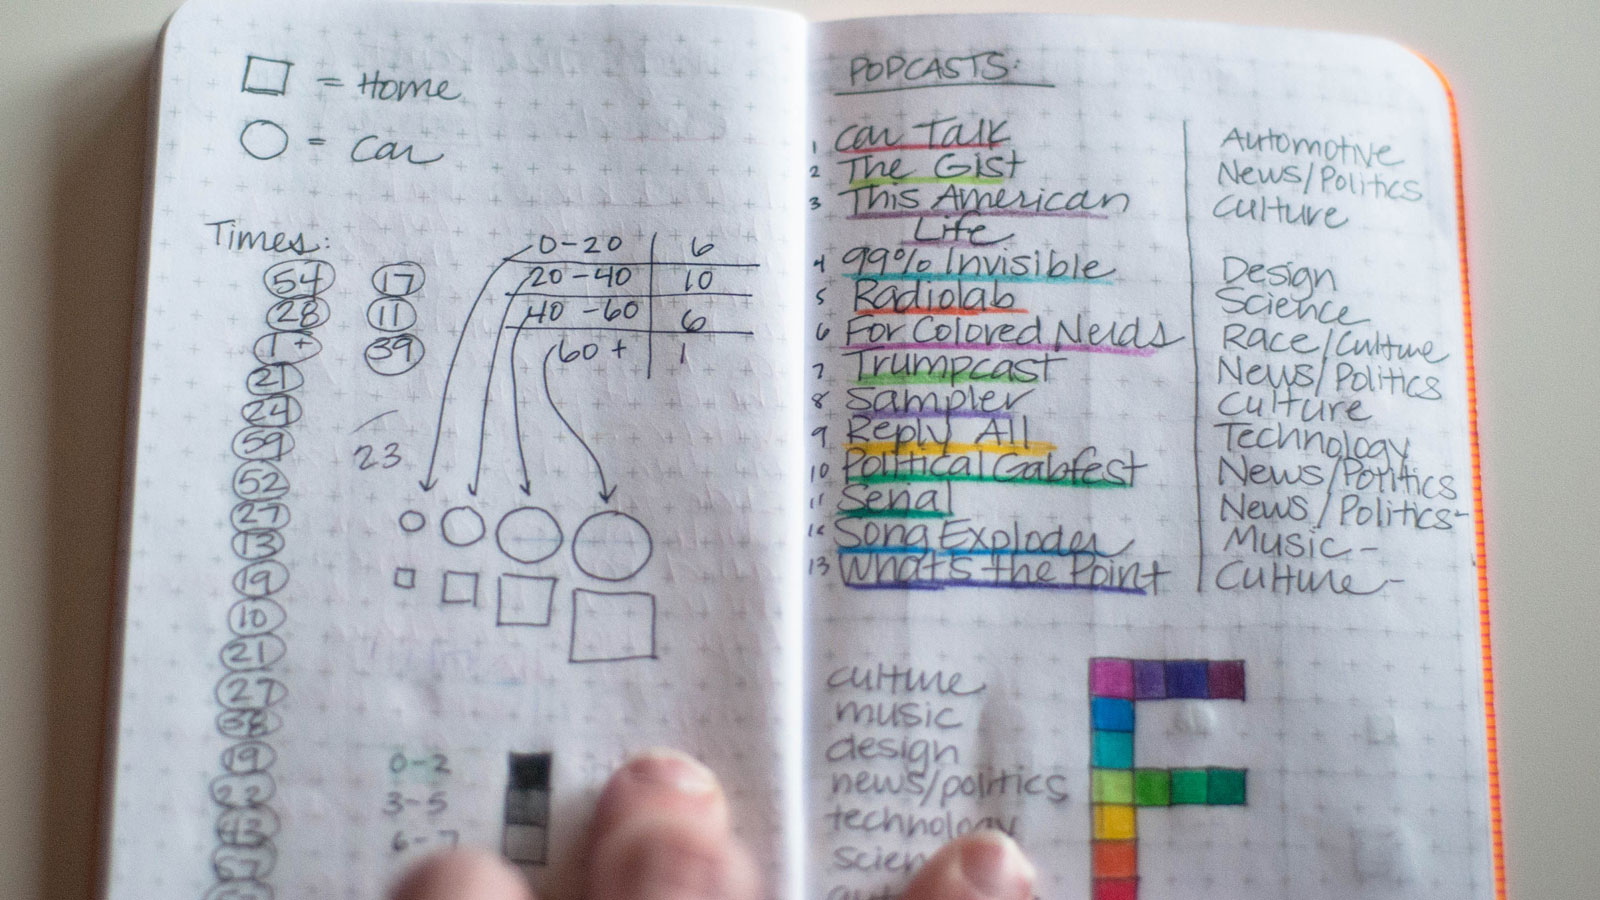 = Home
= Car
Times:
54 17
28 11
1+ 39
21
24
59
52 23
27
13
19
10
21
27
38
19
22
43
27
0-20 6
20-40 10
40-60 6
60+ 1
0-2
3-5
6-7
PODCASTS:
1 Car Talk Automotive
2 The Gist News/Politics
3 This American Culture
Life
4 99% Invisible Design
5 Radiolab Science
6 For Colored Nerds Race/Culture
7 Trumpcast News/Politics
8 Sampler Culture
9 Reply All Technology
10 Political Gabfest News/Politics
11 Serial News/Politics-
12 Song Exploder Music-
13 What's the Point Culture-
culture
music
design
news/politics
technology
scien